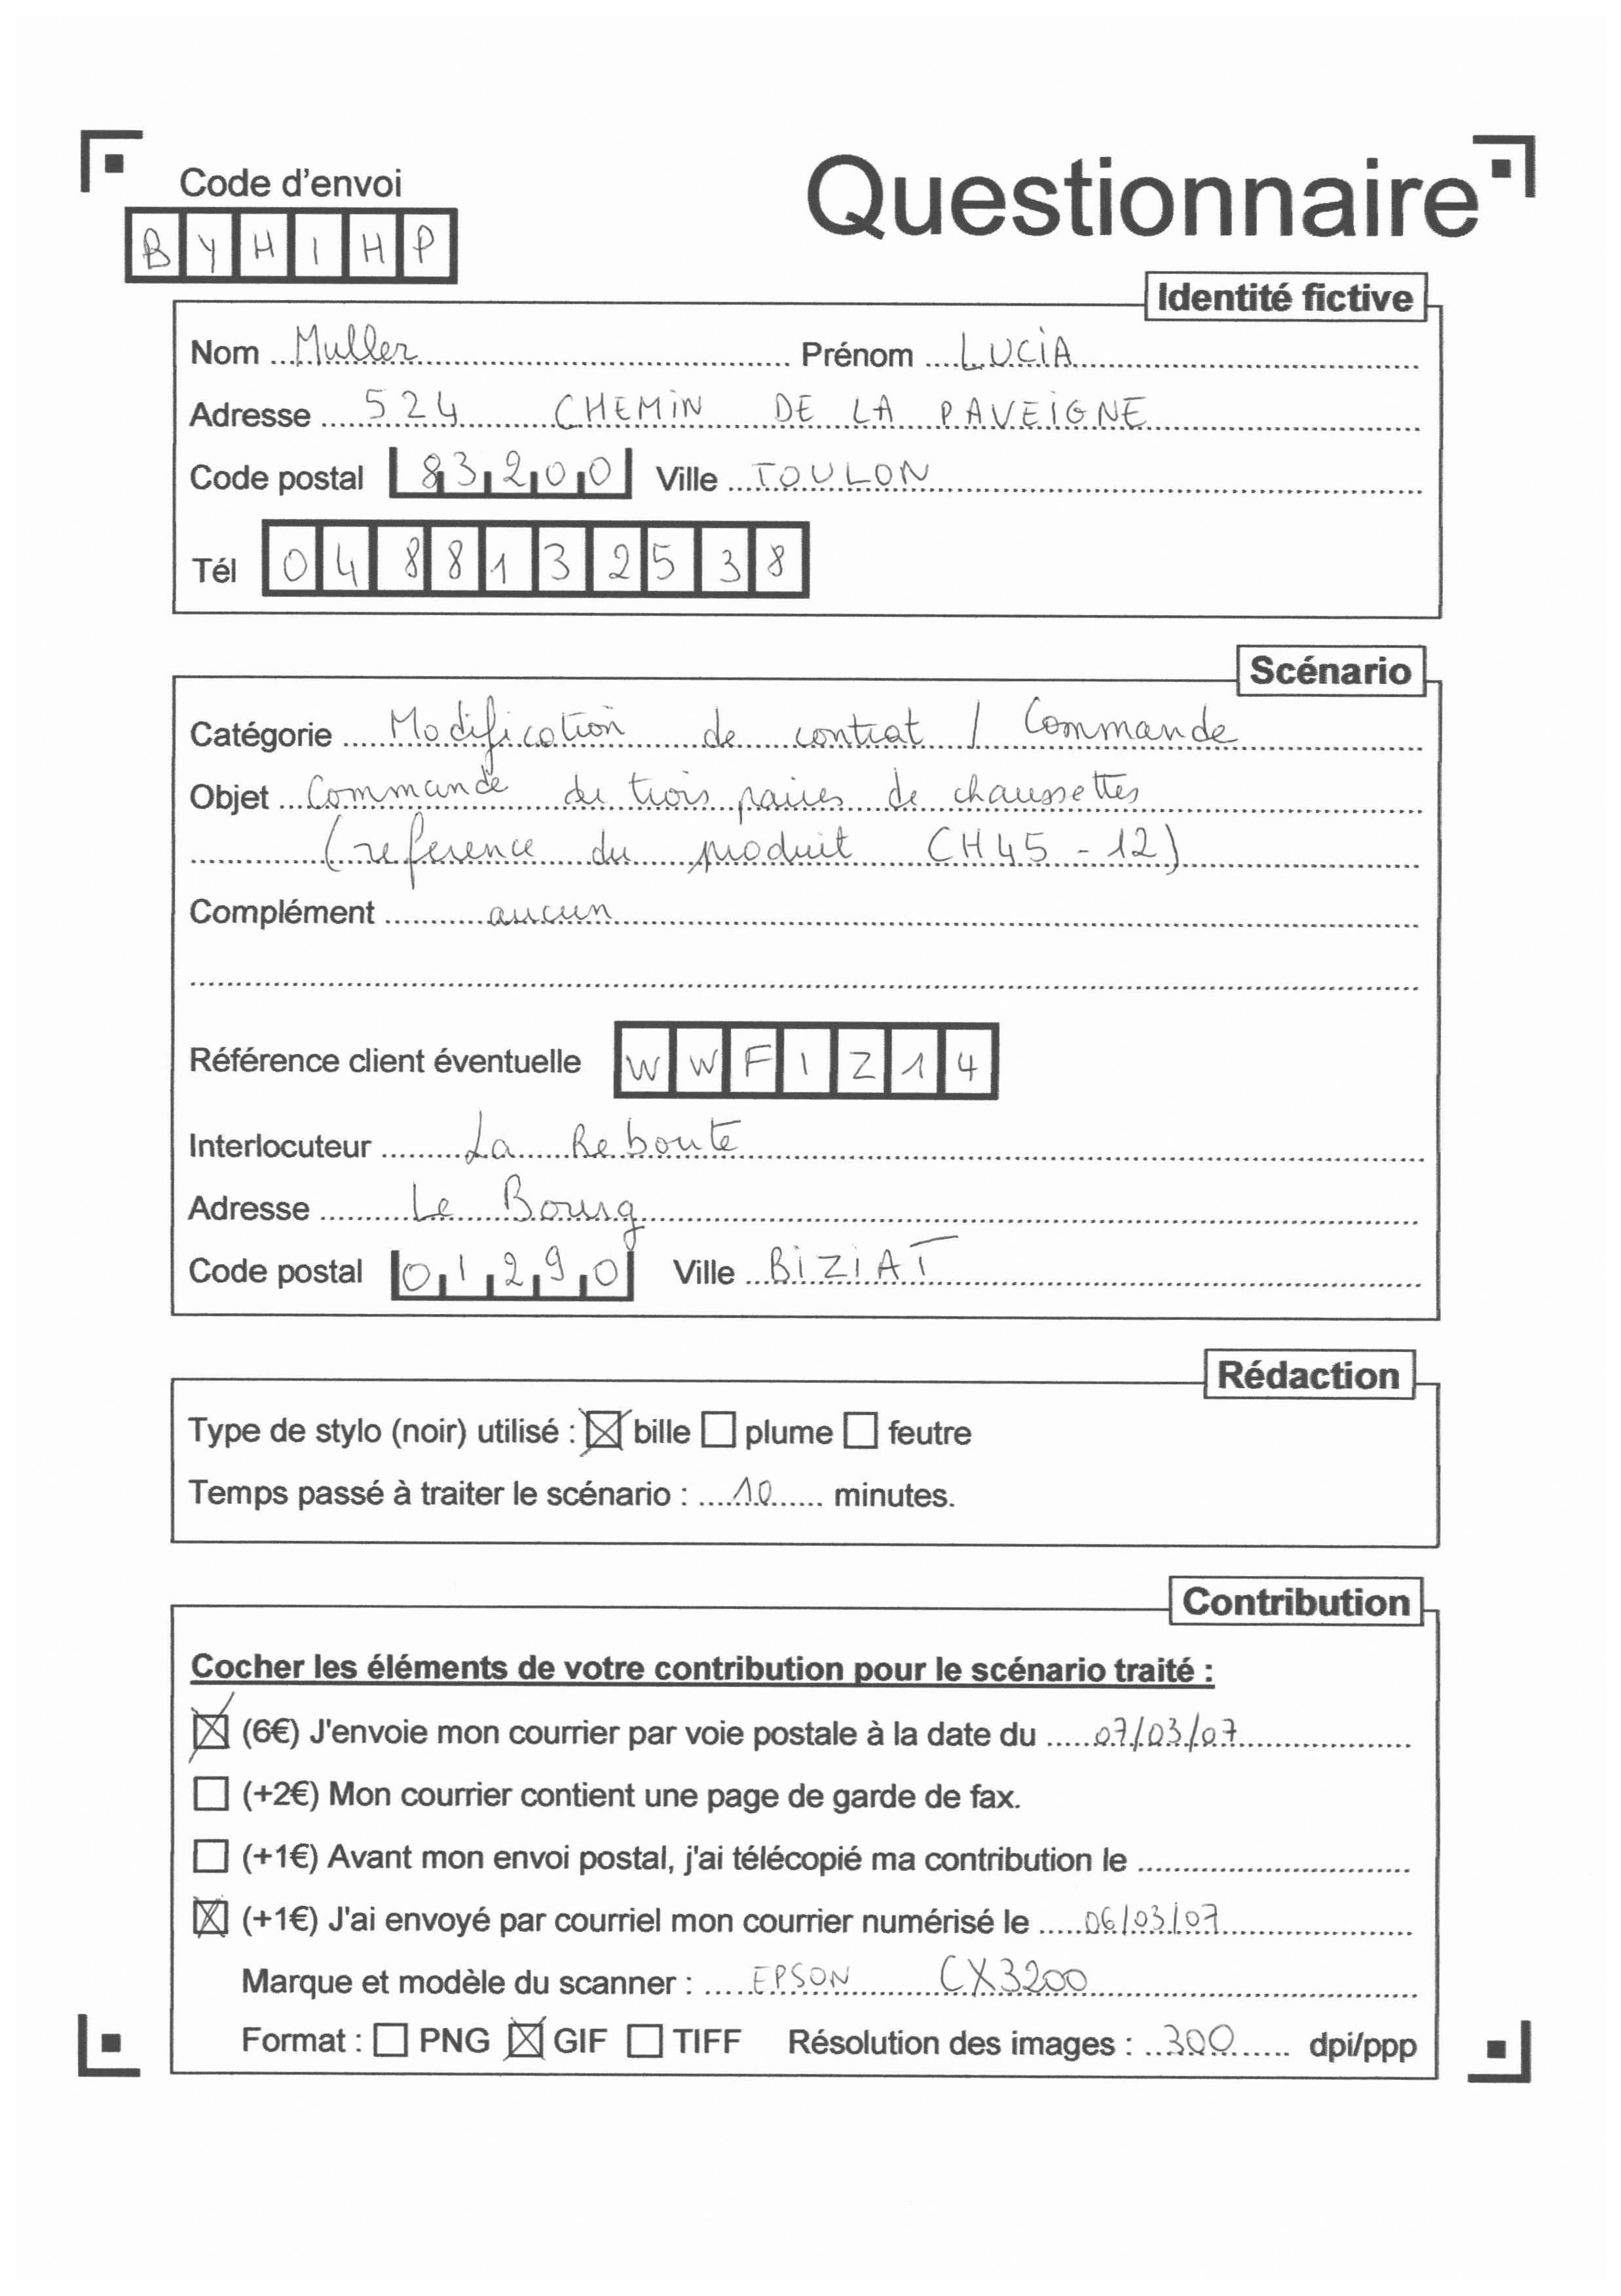 Code d'envoi
Questionnaire
BYHIHP
Identité fictive
Nom Muller Prénom LUCIA
Adresse 524 CHEMIN DE LA PAVEIGNE
Code postal 83200 Ville TOULON
Tél 0488132538
Scénario
Catégorie Modification de contrat / Commande
Objet Commande de trois paires de chaussettes
(reference du produit CH45-12)
Complément aucun
Référence client éventuelle WWFIZ14
Interlocuteur La Reboute
Adresse Le Bourg
Code postal 01290 Ville BIZIAT
Rédaction
Type de stylo (noir) utilisé : ☒ bille ☐ plume ☐ feutre
Temps passé à traiter le scénario : 10 minutes.
Contribution
Cocher les éléments de votre contribution pour le scénario traité :
☒ (6€) J'envoie mon courrier par voie postale à la date du 07/03/07
☐ (+2€) Mon courrier contient une page de garde de fax.
☐ (+1€) Avant mon envoi postal, j'ai télécopié ma contribution le
☒ (+1€) J'ai envoyé par courriel mon courrier numérisé le 06/03/07
Marque et modèle du scanner : EPSON CX3200
Format : ☐ PNG ☒ GIF ☐ TIFF Résolution des images : 300 dpi/ppp